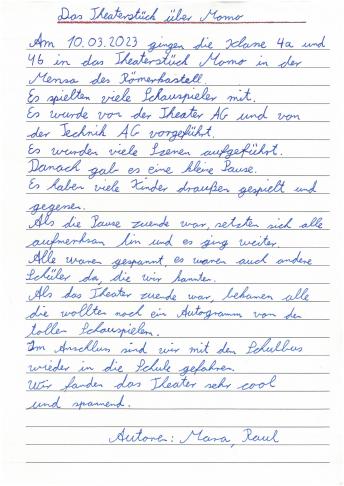 Das Theaterstück über Momo
Am 10.03.2023 gingen die Klasse 4a und
4b in das Theaterstück Momo in der
Mensa des Römerkastell.
Es spielten viele Schauspieler mit.
Es wurde von der Theater AG und von
der Technik AG vorgeführt.
Es wurden viele Szenen aufgeführt.
Danach gab es eine kleine Pause.
Es haben viele Kinder draußen gespielt und
gegessen.
Als die Pause zuende war, setzten sich alle
aufmerksam hin und es ging weiter.
Alle waren gespannt, es waren auch andere
Schüler da, die wir kannten.
Als das Theater zuende war, bekamen alle
die wollten noch ein Autogramm von den
tollen Schauspielern.
Im Anschluss sind wir mit den Schulbus
wieder in die Schule gefahren.
Wir fanden das Theater sehr cool
und spannend.
Autoren: Mara, Raul